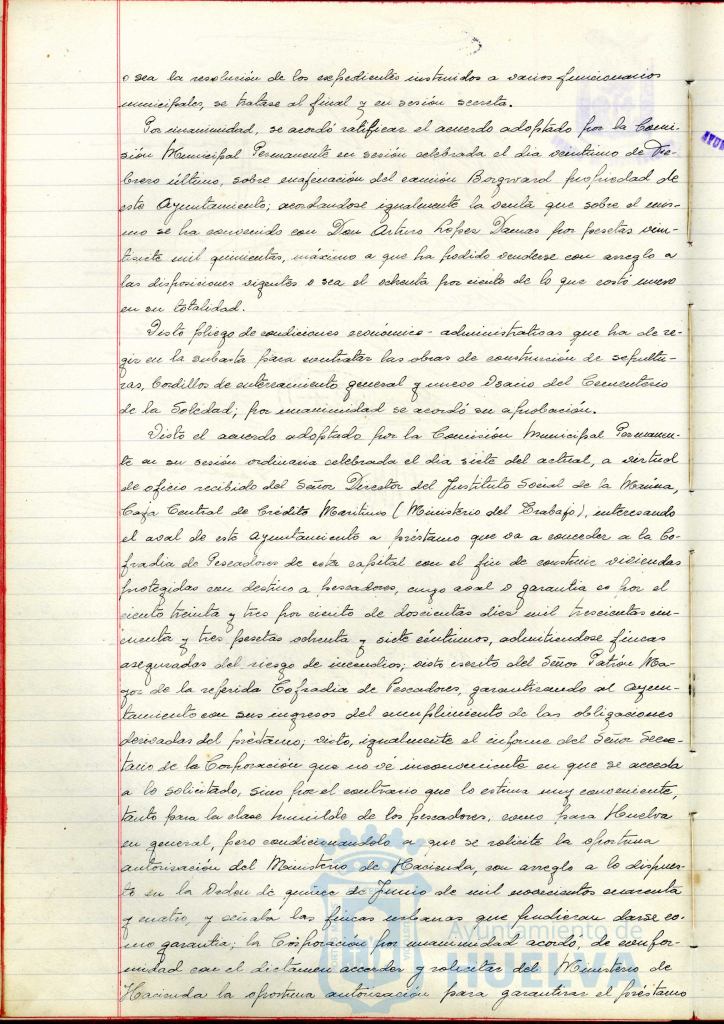 o sea la resolución de los expedientes instruidos a varios funcionarios
municipales, se tratase al final y en sesión secreta.
Por unanimidad, se acordó ratificar el acuerdo adoptado por la Comi-
sión Municipal Permanente en sesión celebrada el dia veintiuno de Fe-
brero último, sobre enagenación del camión Borgward propiedad de
este Ayuntamiento; acordandose igualmente la venta que sobre el mis-
mo se ha convenido con Don Arturo Lopez Damas por pesetas vein-
tisiete mil quinientas, máximo a que ha podido venderse con arreglo a
las disposiciones vigentes o sea el ochenta por ciento de lo que costó nuevo
en su totalidad.
Visto pliego de condiciones económico-administrativas que ha de re-
gir en la subasta para contratar las obras de construcción de sepultu-
ras, bordillos de enterramiento general y nuevo Osario del Cementerio
de la Soledad; por unanimidad se acordó su aprobación.
Visto el acuerdo adoptado por la Comisión Municipal Permanen-
te en su sesión ordinaria celebrada el dia siete del actual, a virtud
de oficio recibido del Señor Director del Instituto Social de la Marina,
Caja Central de Crédito Maritimo (Ministerio del Trabajo), interesando
el aval de este Ayuntamiento a préstamo que va a conceder a la Co-
fradia de Pescadores de esta capital con el fin de construir viviendas
protegidas con destino a pescadores, cuyo aval o garantia es por el
ciento treinta y tres por ciento de doscientas diez mil trescientas cin-
cuenta y tres pesetas ochenta y siete céntimos, admitiendose fincas
aseguradas del riesgo de incendios; visto escrito del Señor Patrón Ma-
yor de la referida Cofradia de Pescadores, garantizando al Ayun-
tamiento con sus ingresos del cumplimiento de las obligaciones
derivadas del préstamo; visto, igualmente el informe del Señor Secre-
tario de la Corporación que no vé inconveniente en que se acceda
a lo solicitado, sino por el contrario que lo estima muy conveniente,
tanto para la clase humilde de los pescadores, como para Huelva
en general, pero condicionandolo a que se solicite la oportuna
autorización del Ministerio de Hacienda, con arreglo a lo dispues-
to en la Orden de quince de Junio de mil novecientos cuarenta
y cuatro, y señala las fincas urbanas que pudieran darse co-
mo garantia; la Corporación por unanimidad acordó, de confor-
midad con el dictamen acceder y solicitar del Ministerio de
Hacienda la oportuna autorización para garantizar el préstamo
Ayuntamiento de
HUELVA